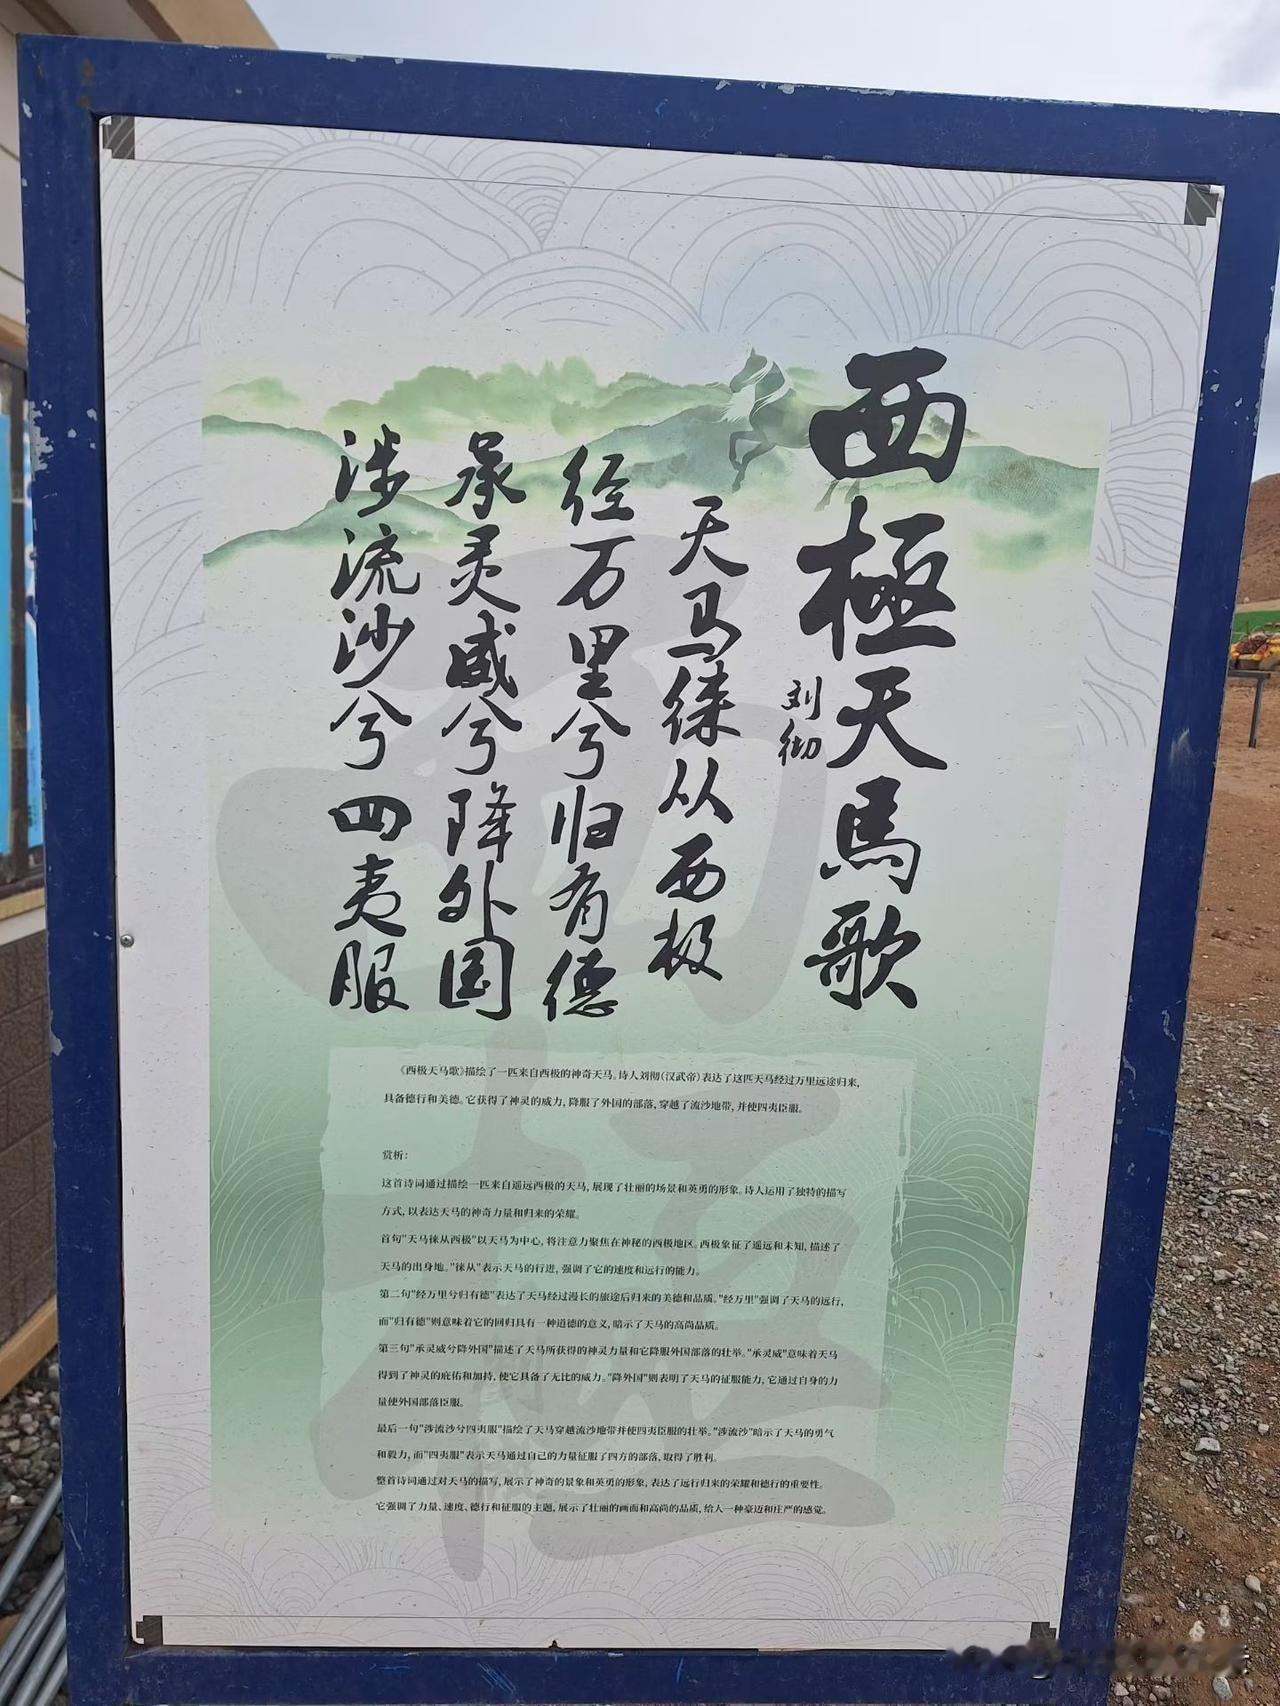 西極天馬歌
刘彻
天马徕从西极
经万里兮归有德
承灵威兮降外国
涉流沙兮四夷服
《西极天马歌》描绘了一匹来自西极的神奇天马。诗人刘彻(汉武帝)表达了这匹天马经过万里远途归来,
具备德行和美德。它获得了神灵的威力,降服了外国的部落,穿越了流沙地带,并使四夷臣服。
赏析:
这首诗词通过描绘一匹来自遥远西极的天马,展现了壮丽的场景和英勇的形象。诗人运用了独特的描写
方式,以表达天马的神奇力量和归来的荣耀。
首句"天马徕从西极"以天马为中心,将注意力聚焦在神秘的西极地区。西极象征了遥远和未知,描述了
天马的出身地。"徕从"表示天马的行进,强调了它的速度和远行的能力。
第二句"经万里兮归有德"表达了天马经过漫长的旅途后归来的美德和品质。"经万里"强调了天马的远行,
而"归有德"则意味着它的回归具有一种道德的意义,暗示了天马的高尚品质。
第三句"承灵威兮降外国"描述了天马所获得的神灵力量和它降服外国部落的壮举。"承灵威"意味着天马
得到了神灵的庇佑和加持,使它具备了无比的威力。"降外国"则表明了天马的征服能力,它通过自身的力
量使外国部落臣服。
最后一句"涉流沙兮四夷服"描绘了天马穿越流沙地带并使四夷臣服的壮举。"涉流沙"暗示了天马的勇气
和毅力,而"四夷服"表示天马通过自己的力量征服了四方的部落,取得了胜利。
整首诗词通过对天马的描写,展示了神奇的景象和英勇的形象,表达了远行归来的荣耀和德行的重要性。
它强调了力量、速度、德行和征服的主题,展示了壮丽的画面和高尚的品质,给人一种豪迈和庄严的感觉。